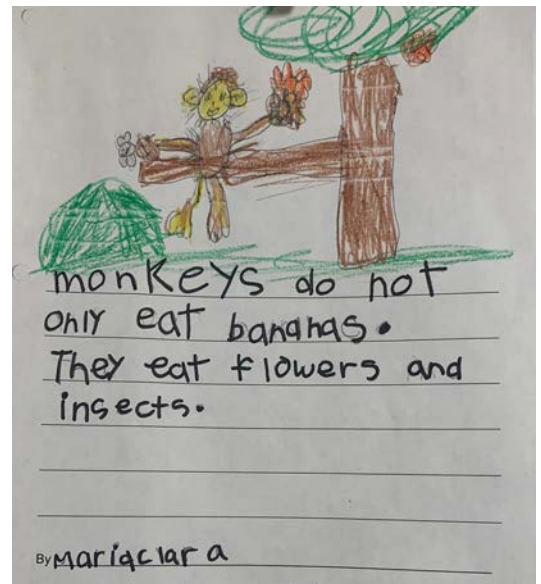 monkeys do not
only eat bananas.
They eat flowers and
insects.
By Mariaclara